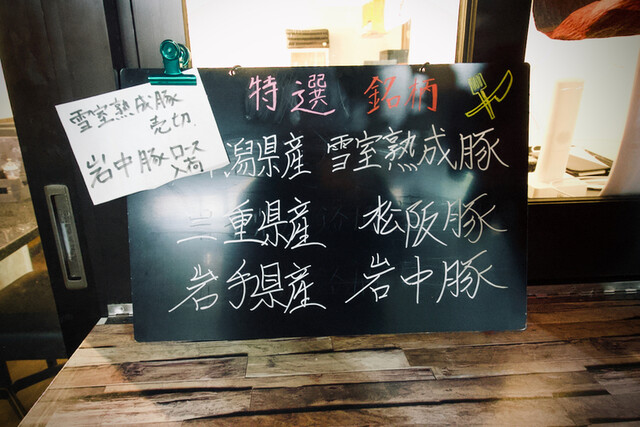 雪室熟成豚
売切
岩中豚ロース
入荷
特選 銘柄
潟県産 雪室熟成豚
三重県産 松阪豚
岩手県産 岩中豚